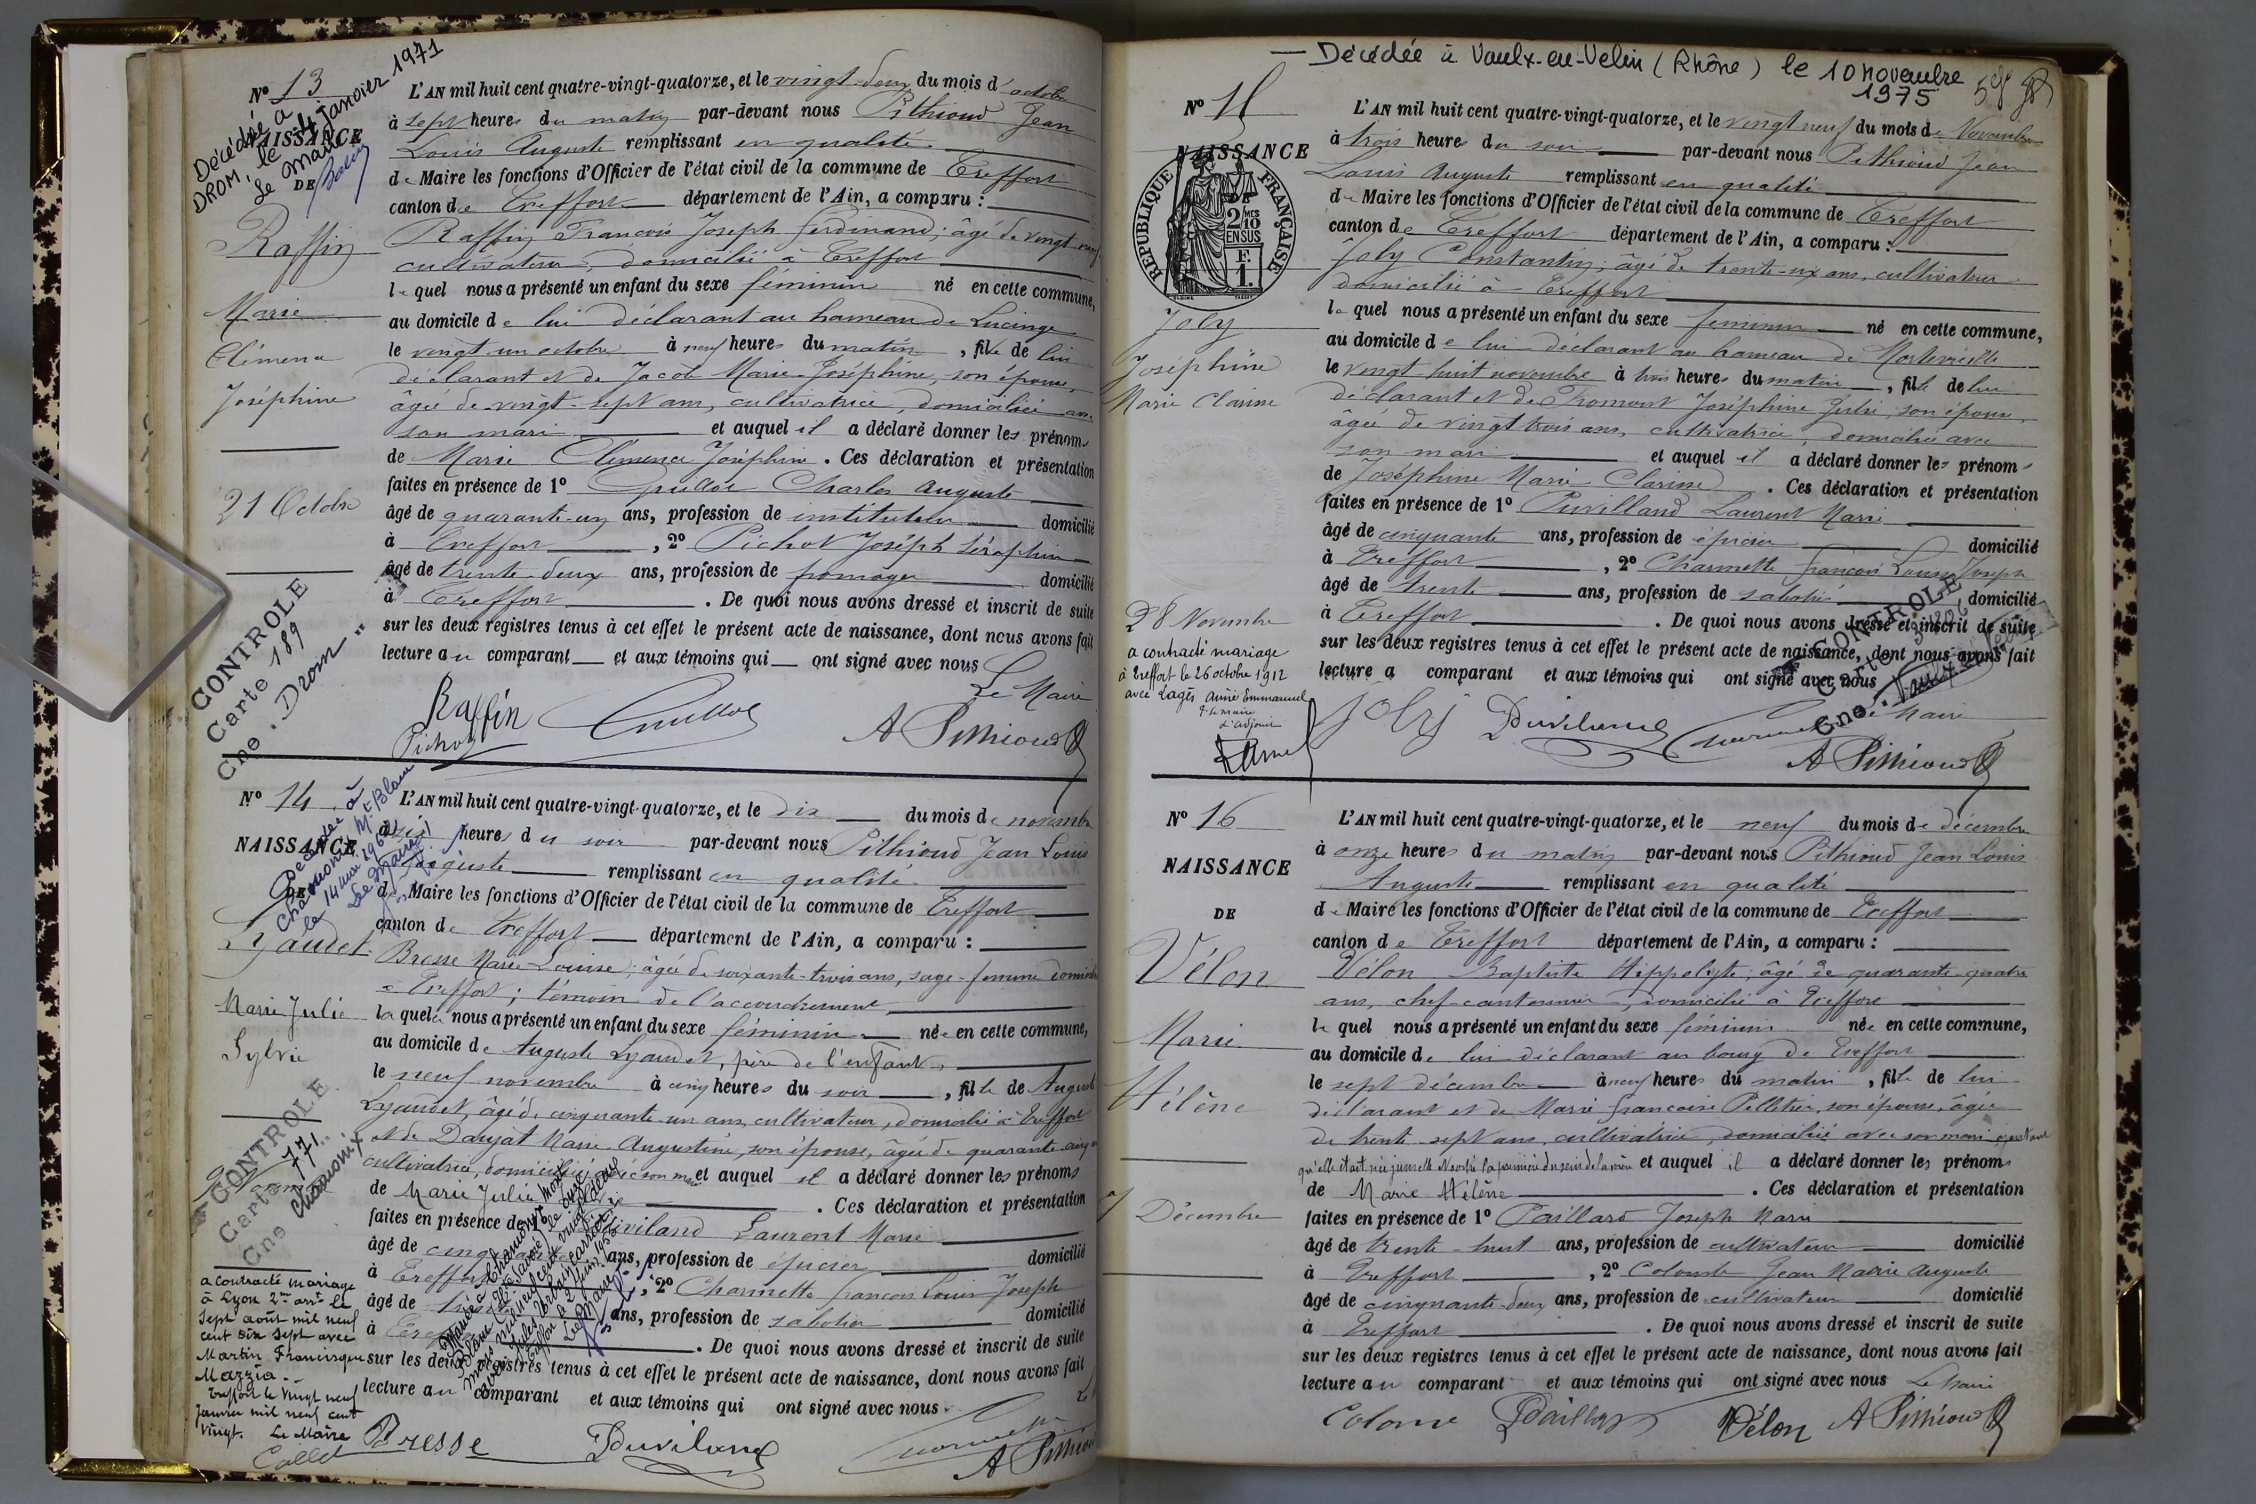 N° 13
NAISSANCE
DE
Décédée à
DROM, le 4 janvier 1971
Le Maire
Raffin
Marie
Clémence
Joséphine
21 Octobre
CONTROLE
Carte 189
Cne. Drom
L'AN mil huit cent quatre-vingt-quatorze, et le vingt-deux du mois d'octobre
à sept heures du matin par-devant nous Pithioud Jean
Louis Auguste remplissant en qualité
de Maire les fonctions d'Officier de l'état civil de la commune de Treffort
canton de Treffort département de l'Ain, a comparu :
Raffin François Joseph Ferdinand; âgé de vingt-neuf
cultivateur, domicilié à Treffort
lequel nous a présenté un enfant du sexe féminin né en cette commune,
au domicile de lui déclarant au hameau de Lucinge
le vingt-un octobre à neuf heures du matin, fille de lui
déclarant et de Jacob Marie-Joséphine, son épouse,
âgée de vingt-sept ans, cultivatrice, domiciliée avec
son mari et auquel il a déclaré donner les prénoms
de Marie Clémence Joséphine. Ces déclaration et présentation
faites en présence de 1° Charles Auguste
âgé de quarante-un ans, profession de instituteur domicilié
à Treffort, 2° Pichot Joséph Séraphin
âgé de trente-deux ans, profession de fromager domicilié
à Treffort. De quoi nous avons dressé et inscrit de suite
sur les deux registres tenus à cet effet le présent acte de naissance, dont nous avons fait
lecture au comparant et aux témoins qui ont signé avec nous
Le Maire
Raffin
Pichot
A Pithioud
N° 14
NAISSANCE
DE
Décédée à
Chamonix Mt-Blanc
le 14 mai 196
Le Maire
Lyaudet
Marie Julie
Sylvie
CONTROLE
Carte 771
Cne Chamonix
a contracté mariage
à Lyon 2me arrt le
sept août mil neuf
cent dix sept avec
Martin Francisque
Mazzia.
Treffort le vingt neuf
Janvier mil neuf cent
vingt. Le Maire
L'AN mil huit cent quatre-vingt-quatorze, et le dix du mois de novembre
à six heures du soir par-devant nous Pithioud Jean Louis
Auguste remplissant en qualité
de Maire les fonctions d'Officier de l'état civil de la commune de Treffort
canton de Treffort département de l'Ain, a comparu :
Bresse Marie Louise; âgée de soixante-trois ans, sage-femme domiciliée
à Treffort; témoin de l'accouchement
laquele nous a présenté un enfant du sexe féminin née en cette commune,
au domicile de Auguste Lyaudet, père de l'enfant,
le neuf novembre à cinq heures du soir, fille de Auguste
Lyaudet, âgé de cinquante-un ans, cultivateur, domicilié à Treffort
et de Daujat Marie-Augustine, son épouse, âgée de quarante-cinq
cultivatrice, domiciliée avec son mari et auquel il a déclaré donner les prénoms
de Marie Julie. Ces déclaration et présentation
faites en présence de 1° Puviland Laurent Marie
âgé de cinquante ans, profession de épicier domicilié
à Treffort, 2° Charmette François Louis Joseph
âgé de ans, profession de sabotier domicilié
à. De quoi nous avons dressé et inscrit de suite
sur les deux registres tenus à cet effet le présent acte de naissance, dont nous avons fait
lecture au comparant et aux témoins qui ont signé avec nous
Bresse
Puviland
A Pithioud
— Décédée à Vaulx-en-Velin (Rhône) le 10 novembre
1975
N° 15
NAISSANCE
RÉPUBLIQUE FRANÇAISE
2/10 MES
EN SUS
F.
1.
Joly
Joséphine
Marie Clarisse
28 Novembre
a contracté mariage
à Treffort le 26 octobre 1912
avec Lagés Aimé Emmanuel
P. le maire
L'adjoint
L'AN mil huit cent quatre-vingt-quatorze, et le vingt neuf du mois de Novembre
à trois heures du soir par-devant nous Pithioud Jean
Louis Auguste remplissant en qualité
de Maire les fonctions d'Officier de l'état civil de la commune de Treffort
canton de Treffort département de l'Ain, a comparu :
Joly Constantin; âgé de trente-six ans, cultivateur
domicilié à Treffort
lequel nous a présenté un enfant du sexe féminin né en cette commune,
au domicile de lui déclarant au hameau de
le vingt huit novembre à trois heures du matin, fille de lui
déclarant et de Fromont Joséphine Julie, son épouse,
âgée de vingt trois ans, cultivatrice, domiciliée avec
son mari et auquel il a déclaré donner les prénoms
de Joséphine Marie Clarisse. Ces déclaration et présentation
faites en présence de 1° Puvilland Laurent Marie
âgé de cinquante ans, profession de épicier domicilié
à Treffort, 2° Charmette François Louis Joseph
âgé de trente ans, profession de sabotié domicilié
à Treffort. De quoi nous avons dressé et inscrit de suite
sur les deux registres tenus à cet effet le présent acte de naissance, dont nous avons fait
lecture a comparant et aux témoins qui ont signé avec nous
CONTROLE
Carte
Cne.
Le Maire
Joly
Puviland
A Pithioud
N° 16
NAISSANCE
DE
Vélon
Marie
Hélène
7 Décembre
L'AN mil huit cent quatre-vingt-quatorze, et le neuf du mois de décembre
à onze heures du matin par-devant nous Pithioud Jean Louis
Auguste remplissant en qualité
de Maire les fonctions d'Officier de l'état civil de la commune de Treffort
canton de Treffort département de l'Ain, a comparu :
Vélon Baptiste Hippolyte; âgé de quarante quatre
ans, chef cantonnier, domicilié à Treffort
lequel nous a présenté un enfant du sexe féminin née en cette commune,
au domicile de lui déclarant au bourg de Treffort
le sept décembre à neuf heures du matin, fille de lui
déclarant et de Marie Françoise Pelletier, son épouse, âgée
de trente-sept ans, cultivatrice, domiciliée avec son mari ajoutant
qu'elle était née jumelle et sortie la première du sein de la mère et auquel il a déclaré donner les prénoms
de Marie Hélène. Ces déclaration et présentation
faites en présence de 1° Paillard Joseph Marie
âgé de trente-huit ans, profession de cultivateur domicilié
à Treffort, 2° Colomb Jean Marie Auguste
âgé de cinquante-deux ans, profession de cultivateur domicilié
à Treffort. De quoi nous avons dressé et inscrit de suite
sur les deux registres tenus à cet effet le présent acte de naissance, dont nous avons fait
lecture au comparant et aux témoins qui ont signé avec nous Le Maire
Paillard
Vélon
A Pithioud